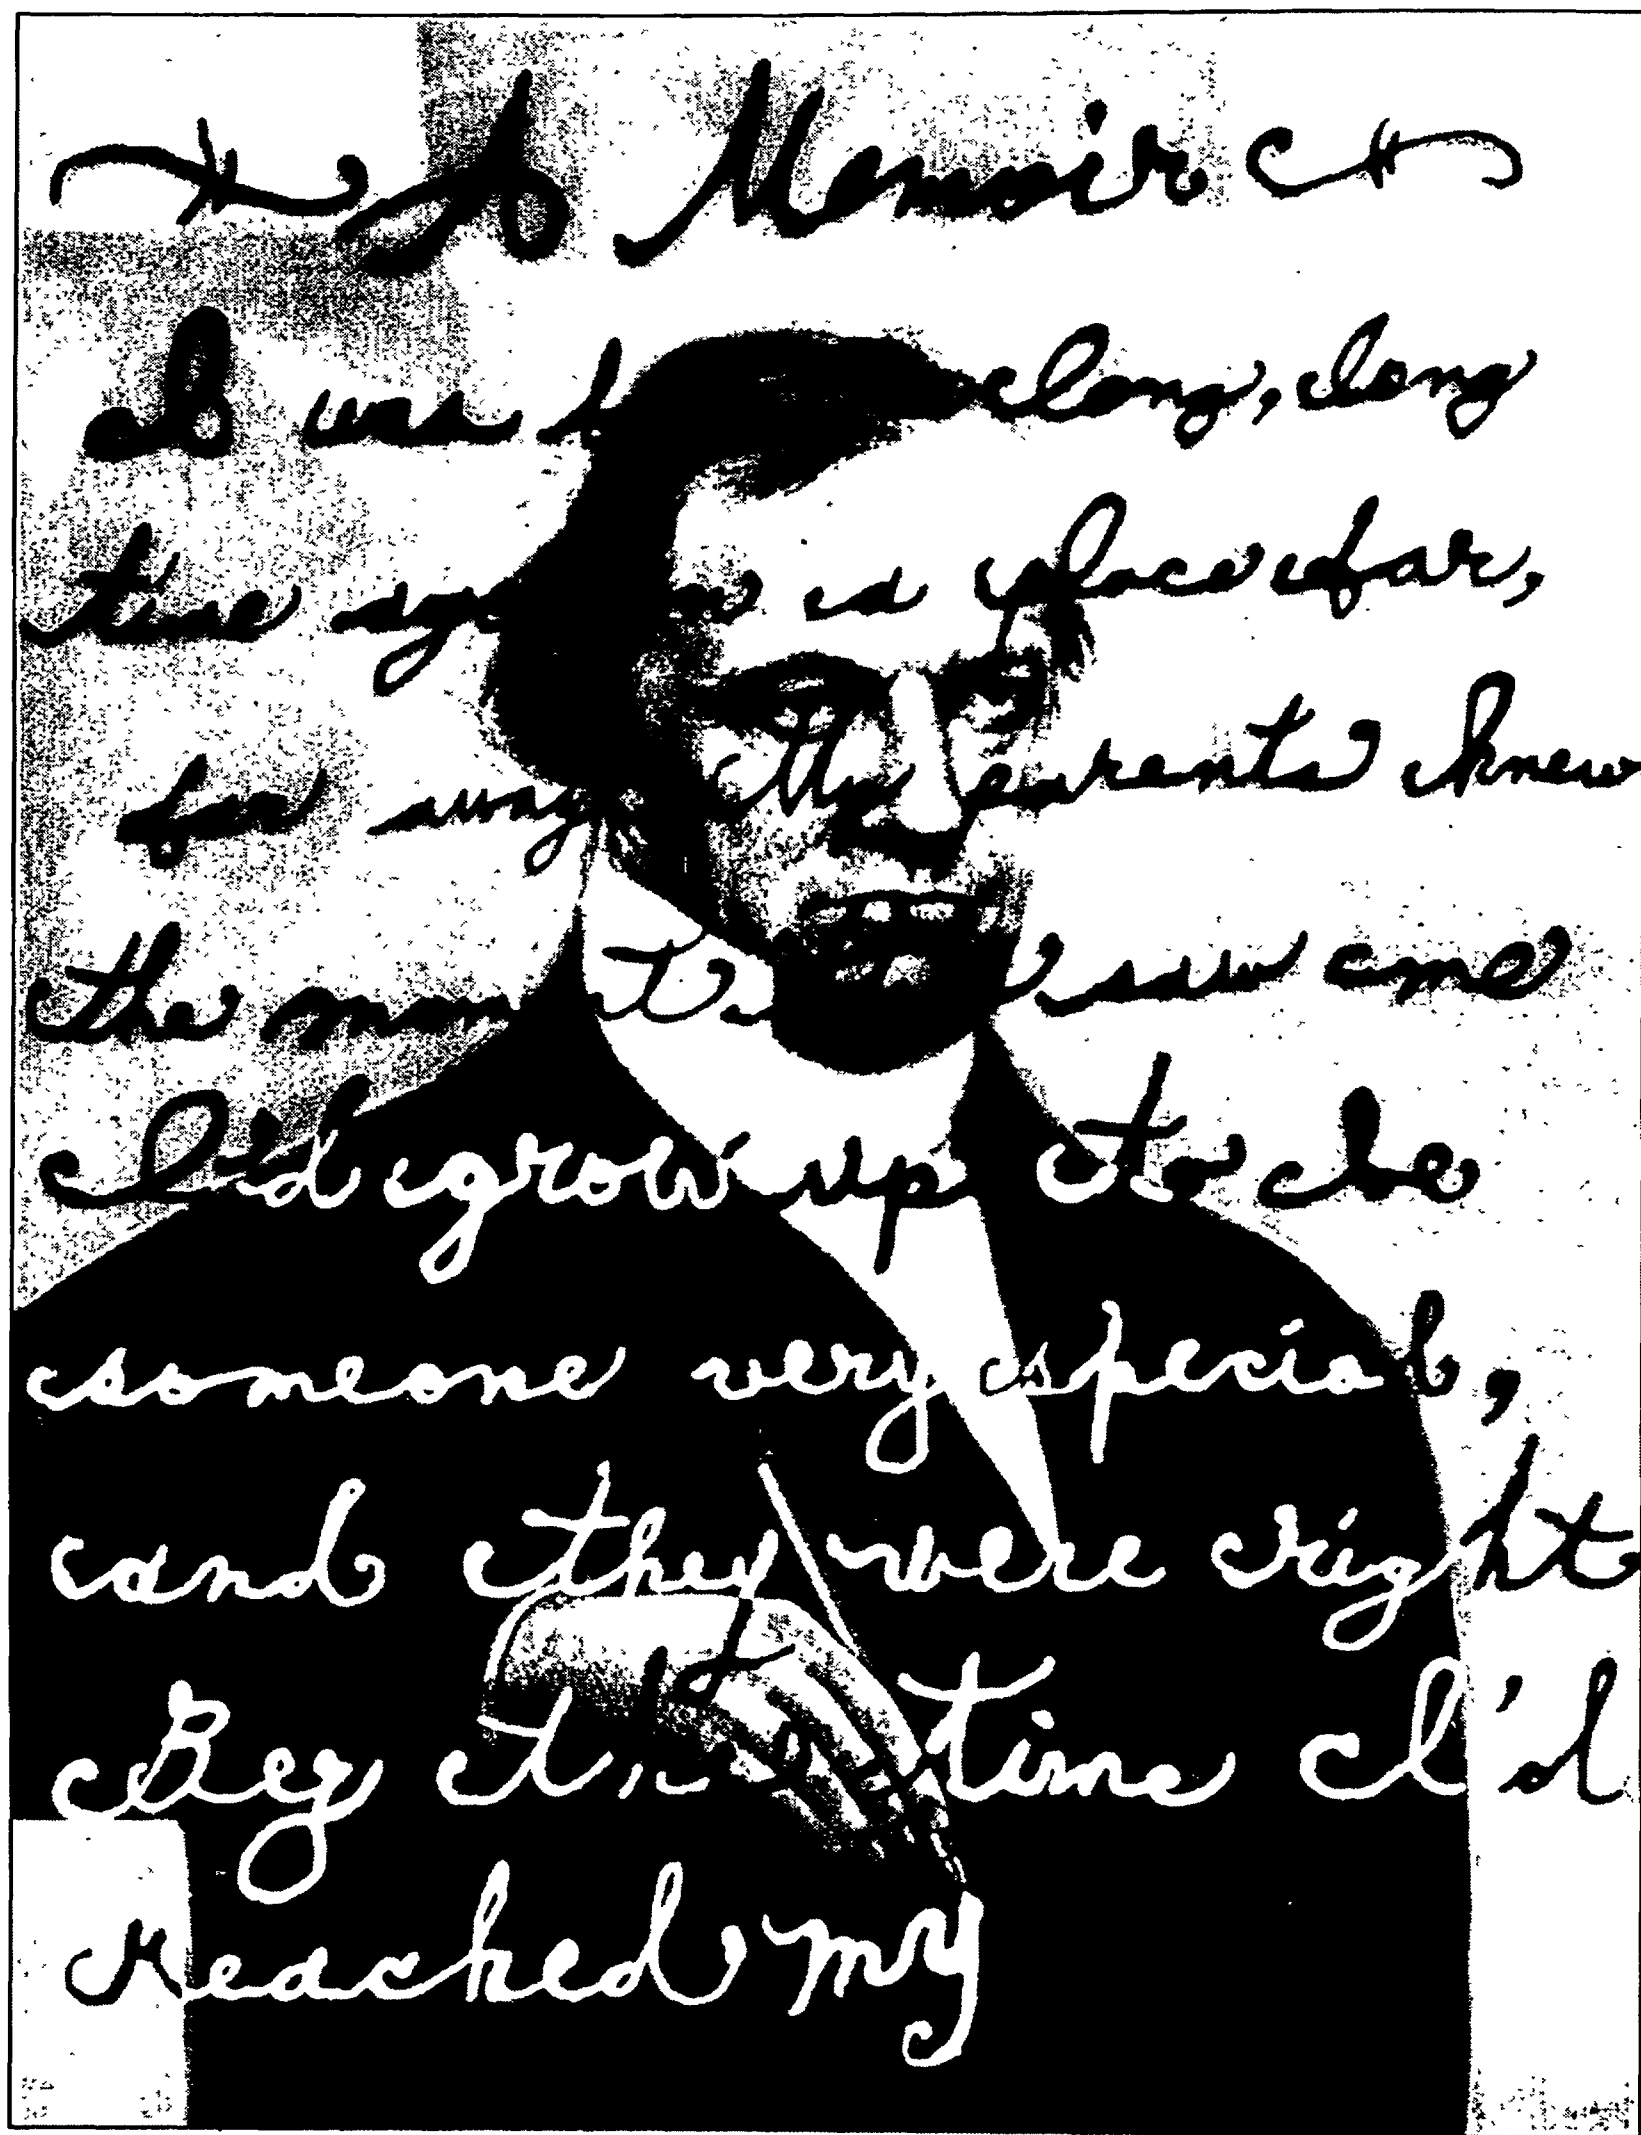 A Memoir
I was long, long
time ago in a place far,
far away My parents knew
the moment saw me
I'd grow up to be
someone very special,
and they were right
By the time I'd
reached my